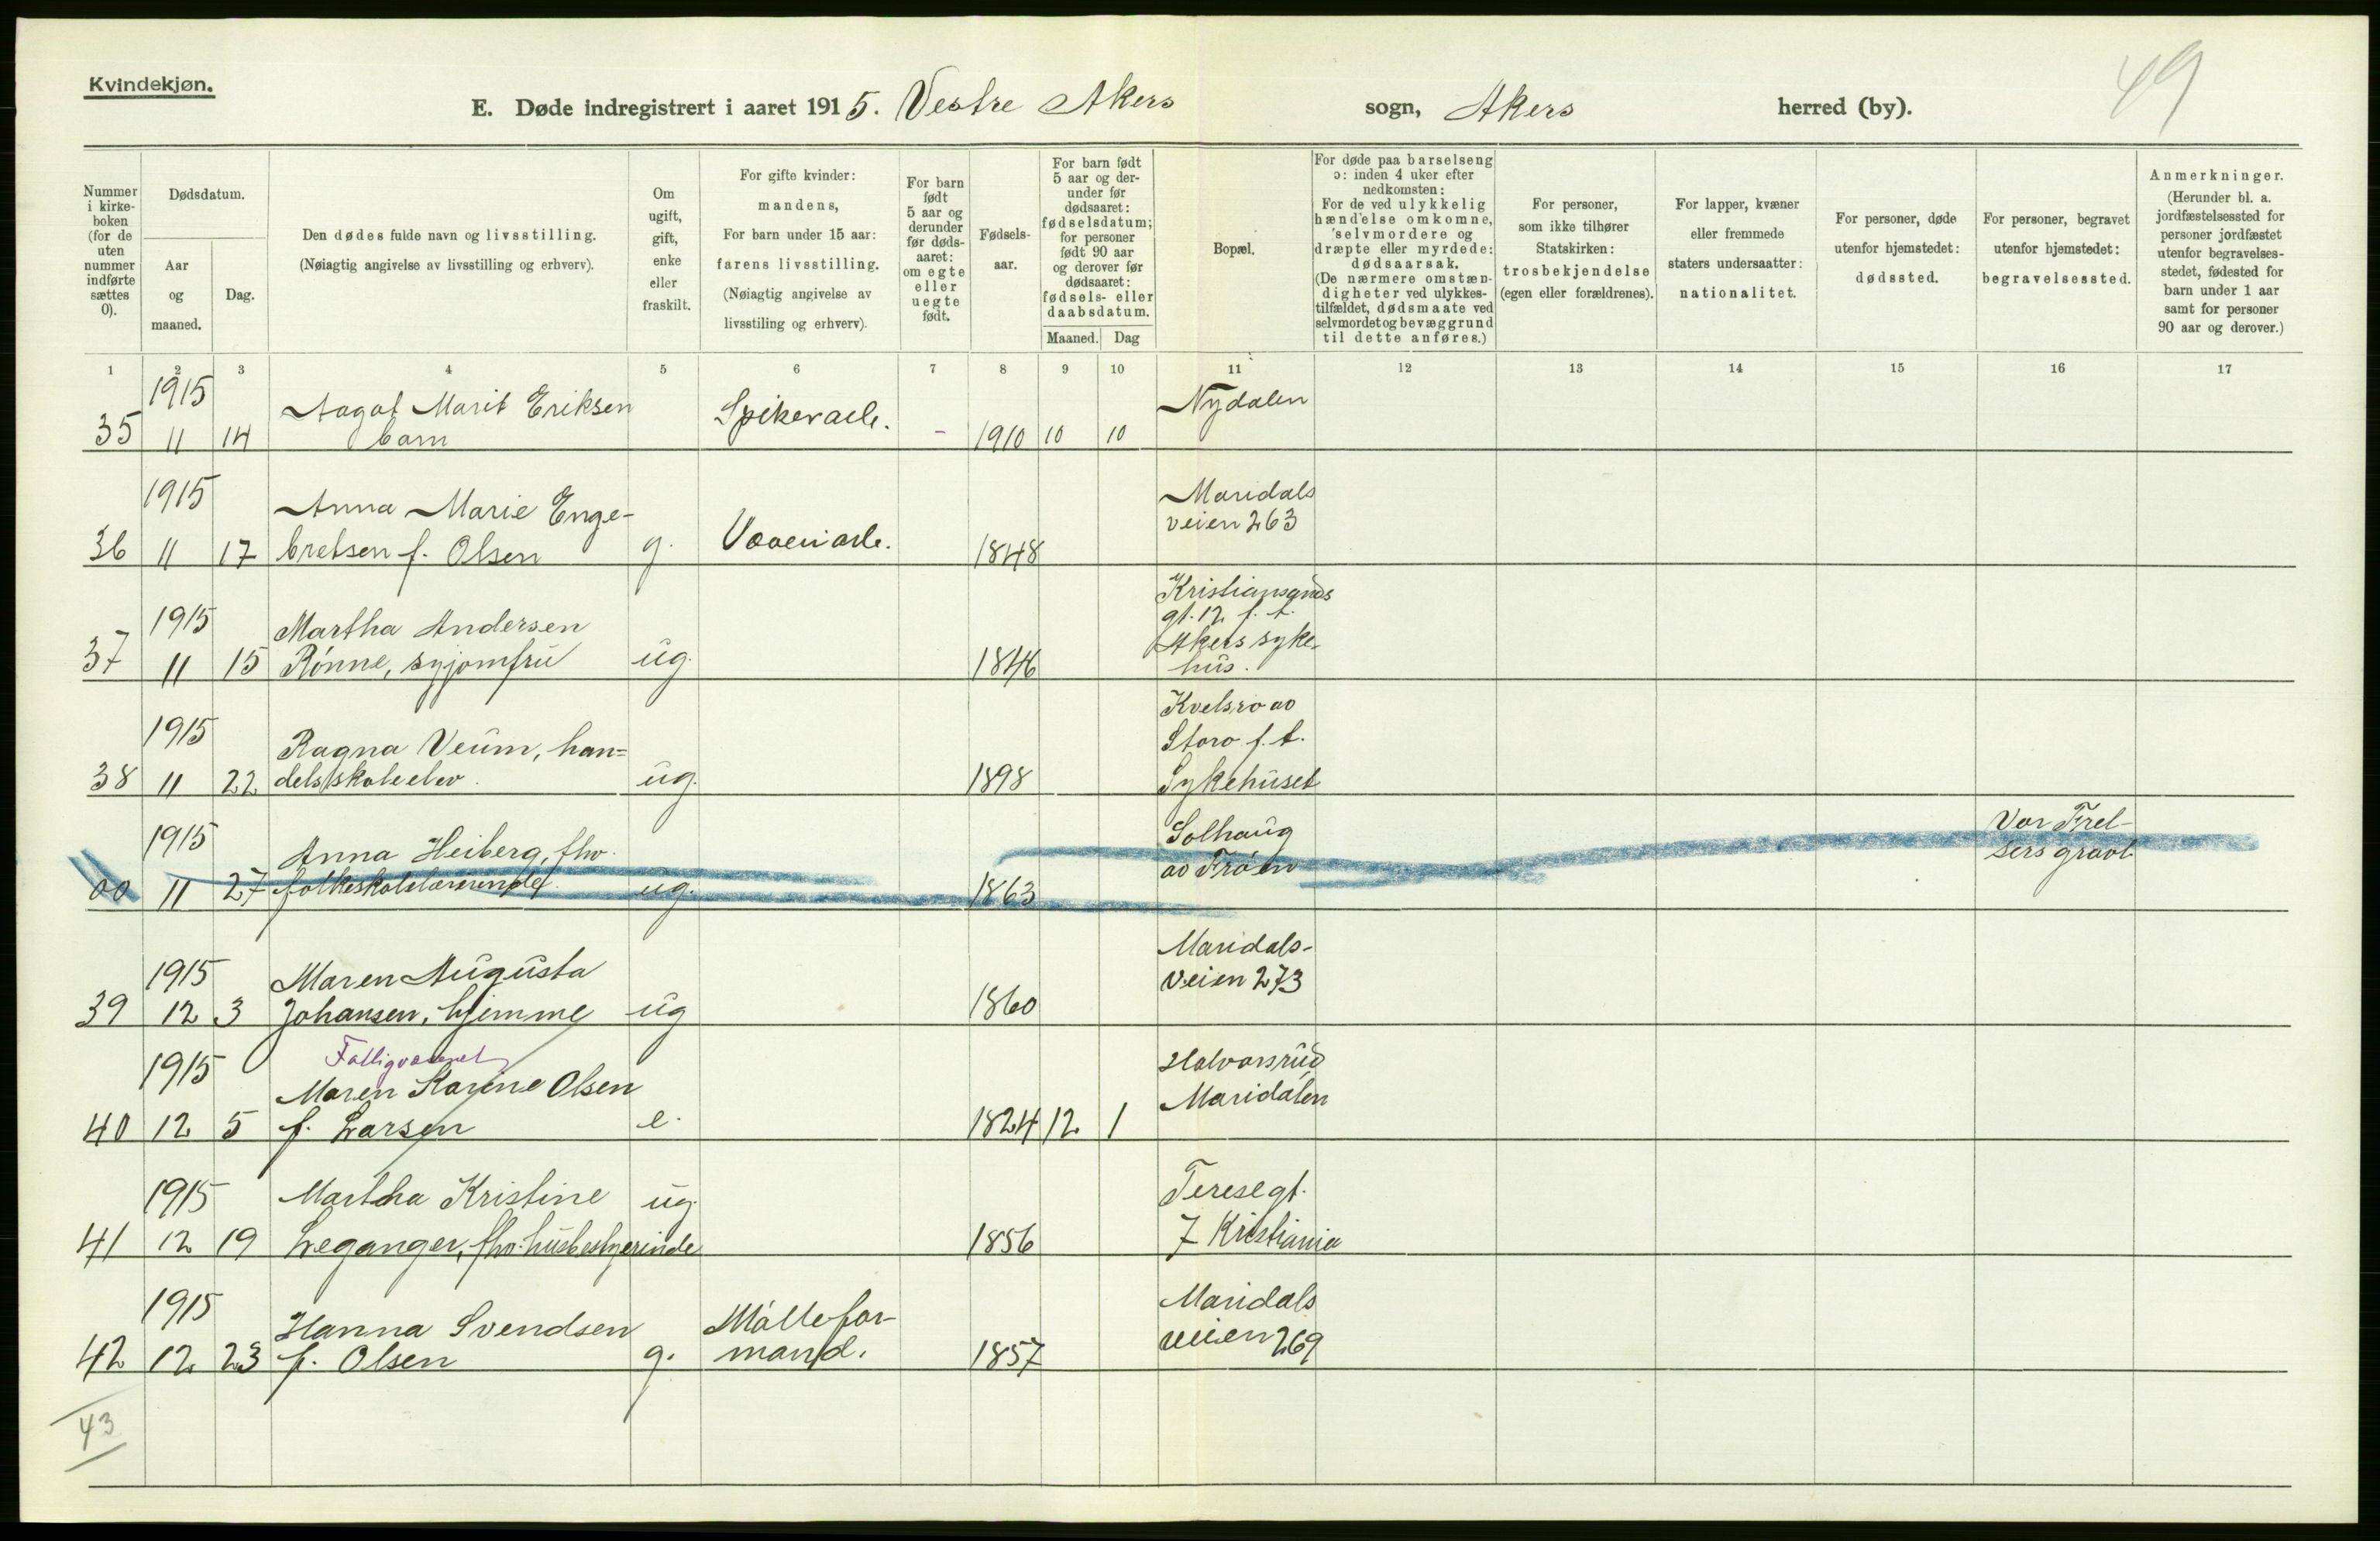 Kvindekjøn.
49
E. Døde indregistrert i aaret 1915. Vestre Akers sogn, Akers herred (by).
Nummer i kirke-boken (for de uten nummer indførte sættes 0).
Dødsdatum.
Aar og maaned.
Dag.
Den dødes fulde navn og livsstilling.
(Nøiagtig angivelse av livsstilling og erhverv).
Om ugift, gift, enke eller fraskilt.
For gifte kvinder: mandens,
For barn under 15 aar: farens livsstilling.
(Nøiagtig angivelse av livsstiling og erhverv).
For barn født 5 aar og derunder før døds-aaret: om egte eller uegte født.
Fødsels-aar.
For barn født 5 aar og der-under før dødsaaret: fødselsdatum; for personer født 90 aar og derover før dødsaaret: fødsels- eller daabsdatum.
Maaned.
Dag
Bopæl.
For døde paa barselseng ɔ: inden 4 uker efter nedkomsten:
For de ved ulykkelig hændelse omkomne, selvmordere og dræpte eller myrdede: dødsaarsak.
(De nærmere omstæn-digheter ved ulykkes-tilfældet, dødsmaate ved selvmordet og bevæggrund til dette anføres.)
For personer, som ikke tilhører Statskirken: trosbekjendelse (egen eller forældrenes).
For lapper, kvæner eller fremmede staters undersaatter: nationalitet.
For personer, døde utenfor hjemstedet: dødssted.
For personer, begravet utenfor hjemstedet: begravelsessted.
Anmerkninger.
(Herunder bl. a. jordfæstelsessted for personer jordfæstet utenfor begravelses-stedet, fødested for barn under 1 aar samt for personer 90 aar og derover.)
1 2 3 4 5 6 7 8 9 10 11 12 13 14 15 16 17
1915 Aagot Marit Eriksen Spikerarb. Nydalen
35 11 14 barn - 1910 10 10
1915 Anna Marie Enge- Maridals
36 11 17 bretsen f. Olsen g. Væveriarb. 1848 veien 263
1915 Martha Andersen Kristiansands
gt. 12 f. t.
Akers syke-
37 11 15 Rönne, syjomfru ug. 1846 hus.
1915 Ragna Veum, han- Kvelsro av
Storo f. t.
38 11 22 delsskoleelev. ug. 1898 Sykehuset
1915 Anna Heiberg, fhv. Solhaug Vor Frel-
00 11 27 folkeskolelærerinde ug. 1863 av Fröen sers gravl.
1915 Maren Augusta Maridals-
39 12 3 Johansen, hjemme ug 1860 Veien 273
Fattigvæsenet
1915 Maren Karine Olsen Halvorsrud
40 12 5 f. Larsen e. 1824 12 1 Maridalen
1915 Martha Kristine ug. Teresegt.
41 12 19 Leganger, fhv. husbestyrerinde 1856 7 Kristiania
1915 Hanna Svendsen Möllefor- Maridals
42 12 23 f. Olsen g. mand. 1857 veien 269
43